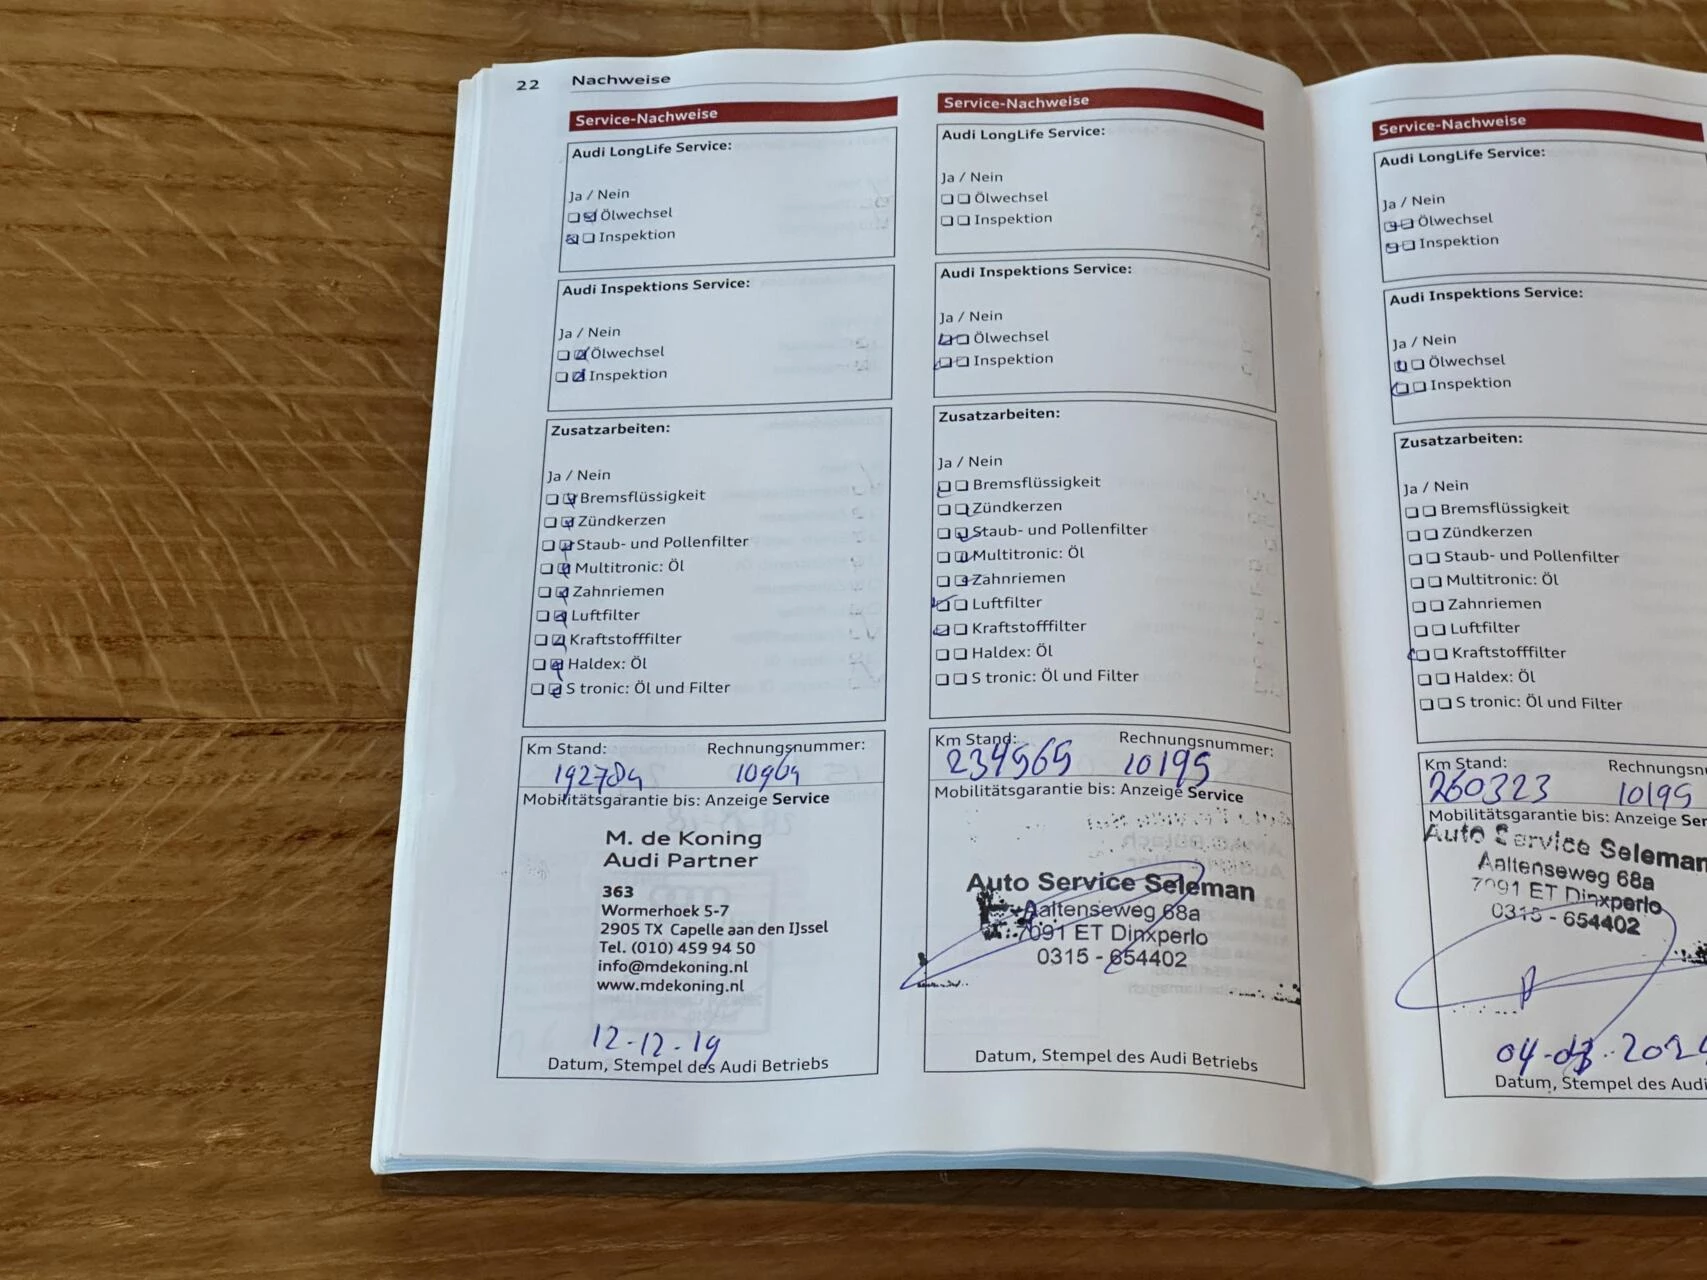 22 Nachweise
Service-Nachweise
Audi LongLife Service:
Ja / Nein
Ölwechsel
Inspektion
Audi Inspektions Service:
Ja / Nein
Ölwechsel
Inspektion
Zusatzarbeiten:
Ja / Nein
Bremsflüssigkeit
Zündkerzen
Staub- und Pollenfilter
Multitronic: Öl
Zahnriemen
Luftfilter
Kraftstofffilter
Haldex: Öl
S tronic: Öl und Filter
Km Stand: Rechnungsnummer:
192784 10964
Mobilitätsgarantie bis: Anzeige Service
M. de Koning
Audi Partner
363
Wormerhoek 5-7
2905 TX Capelle aan den IJssel
Tel. (010) 459 94 50
info@mdekoning.nl
www.mdekoning.nl
12-12-19
Datum, Stempel des Audi Betriebs
Service-Nachweise
Audi LongLife Service:
Ja / Nein
Ölwechsel
Inspektion
Audi Inspektions Service:
Ja / Nein
Ölwechsel
Inspektion
Zusatzarbeiten:
Ja / Nein
Bremsflüssigkeit
Zündkerzen
Staub- und Pollenfilter
Multitronic: Öl
Zahnriemen
Luftfilter
Kraftstofffilter
Haldex: Öl
S tronic: Öl und Filter
Km Stand: Rechnungsnummer:
234565 10195
Mobilitätsgarantie bis: Anzeige Service
Auto Service Seleman
Aaltenseweg 68a
7091 ET Dinxperlo
0315 - 654402
Datum, Stempel des Audi Betriebs
Service-Nachweise
Audi LongLife Service:
Ja / Nein
Ölwechsel
Inspektion
Audi Inspektions Service:
Ja / Nein
Ölwechsel
Inspektion
Zusatzarbeiten:
Ja / Nein
Bremsflüssigkeit
Zündkerzen
Staub- und Pollenfilter
Multitronic: Öl
Zahnriemen
Luftfilter
Kraftstofffilter
Haldex: Öl
S tronic: Öl und Filter
Km Stand: Rechnungsnu
260323 10195
Mobilitätsgarantie bis: Anzeige Ser
Auto Service Seleman
Aaltenseweg 68a
7091 ET Dinxperlo
0315 - 654402
Datum, Stempel des Audi